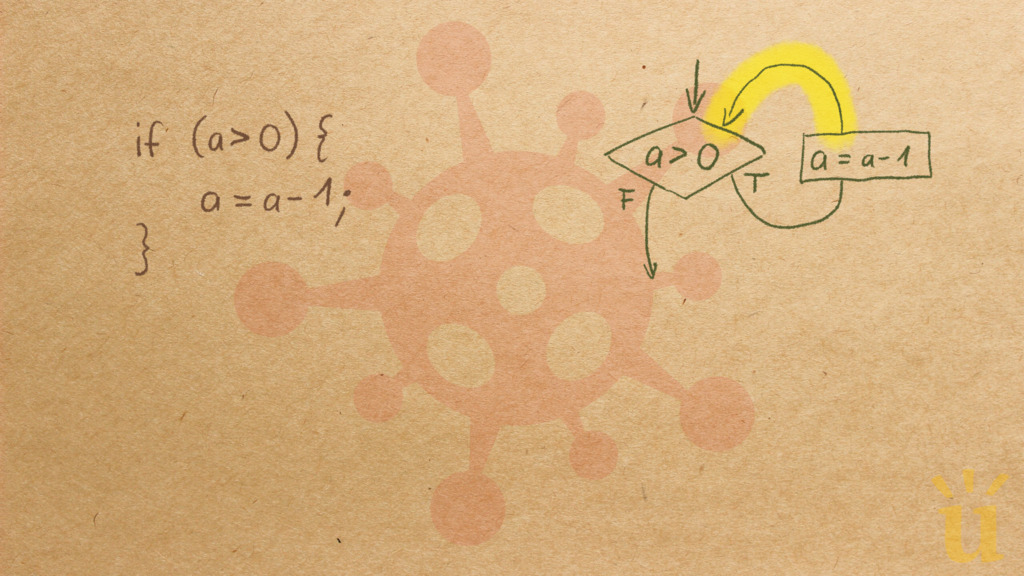 if (a>0) {
a = a-1;
}
a>0
F
T
a = a-1
u